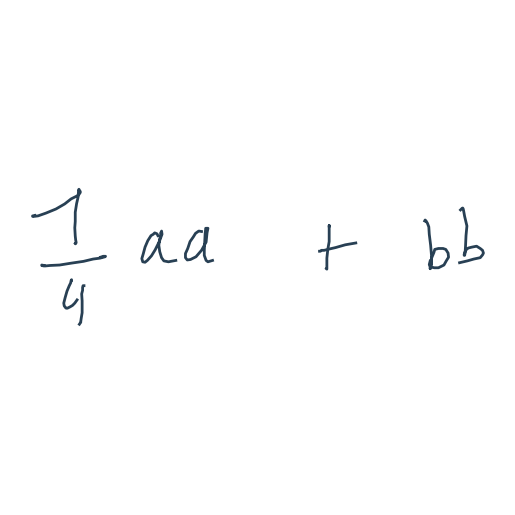 \frac{1}{4} aa + bb